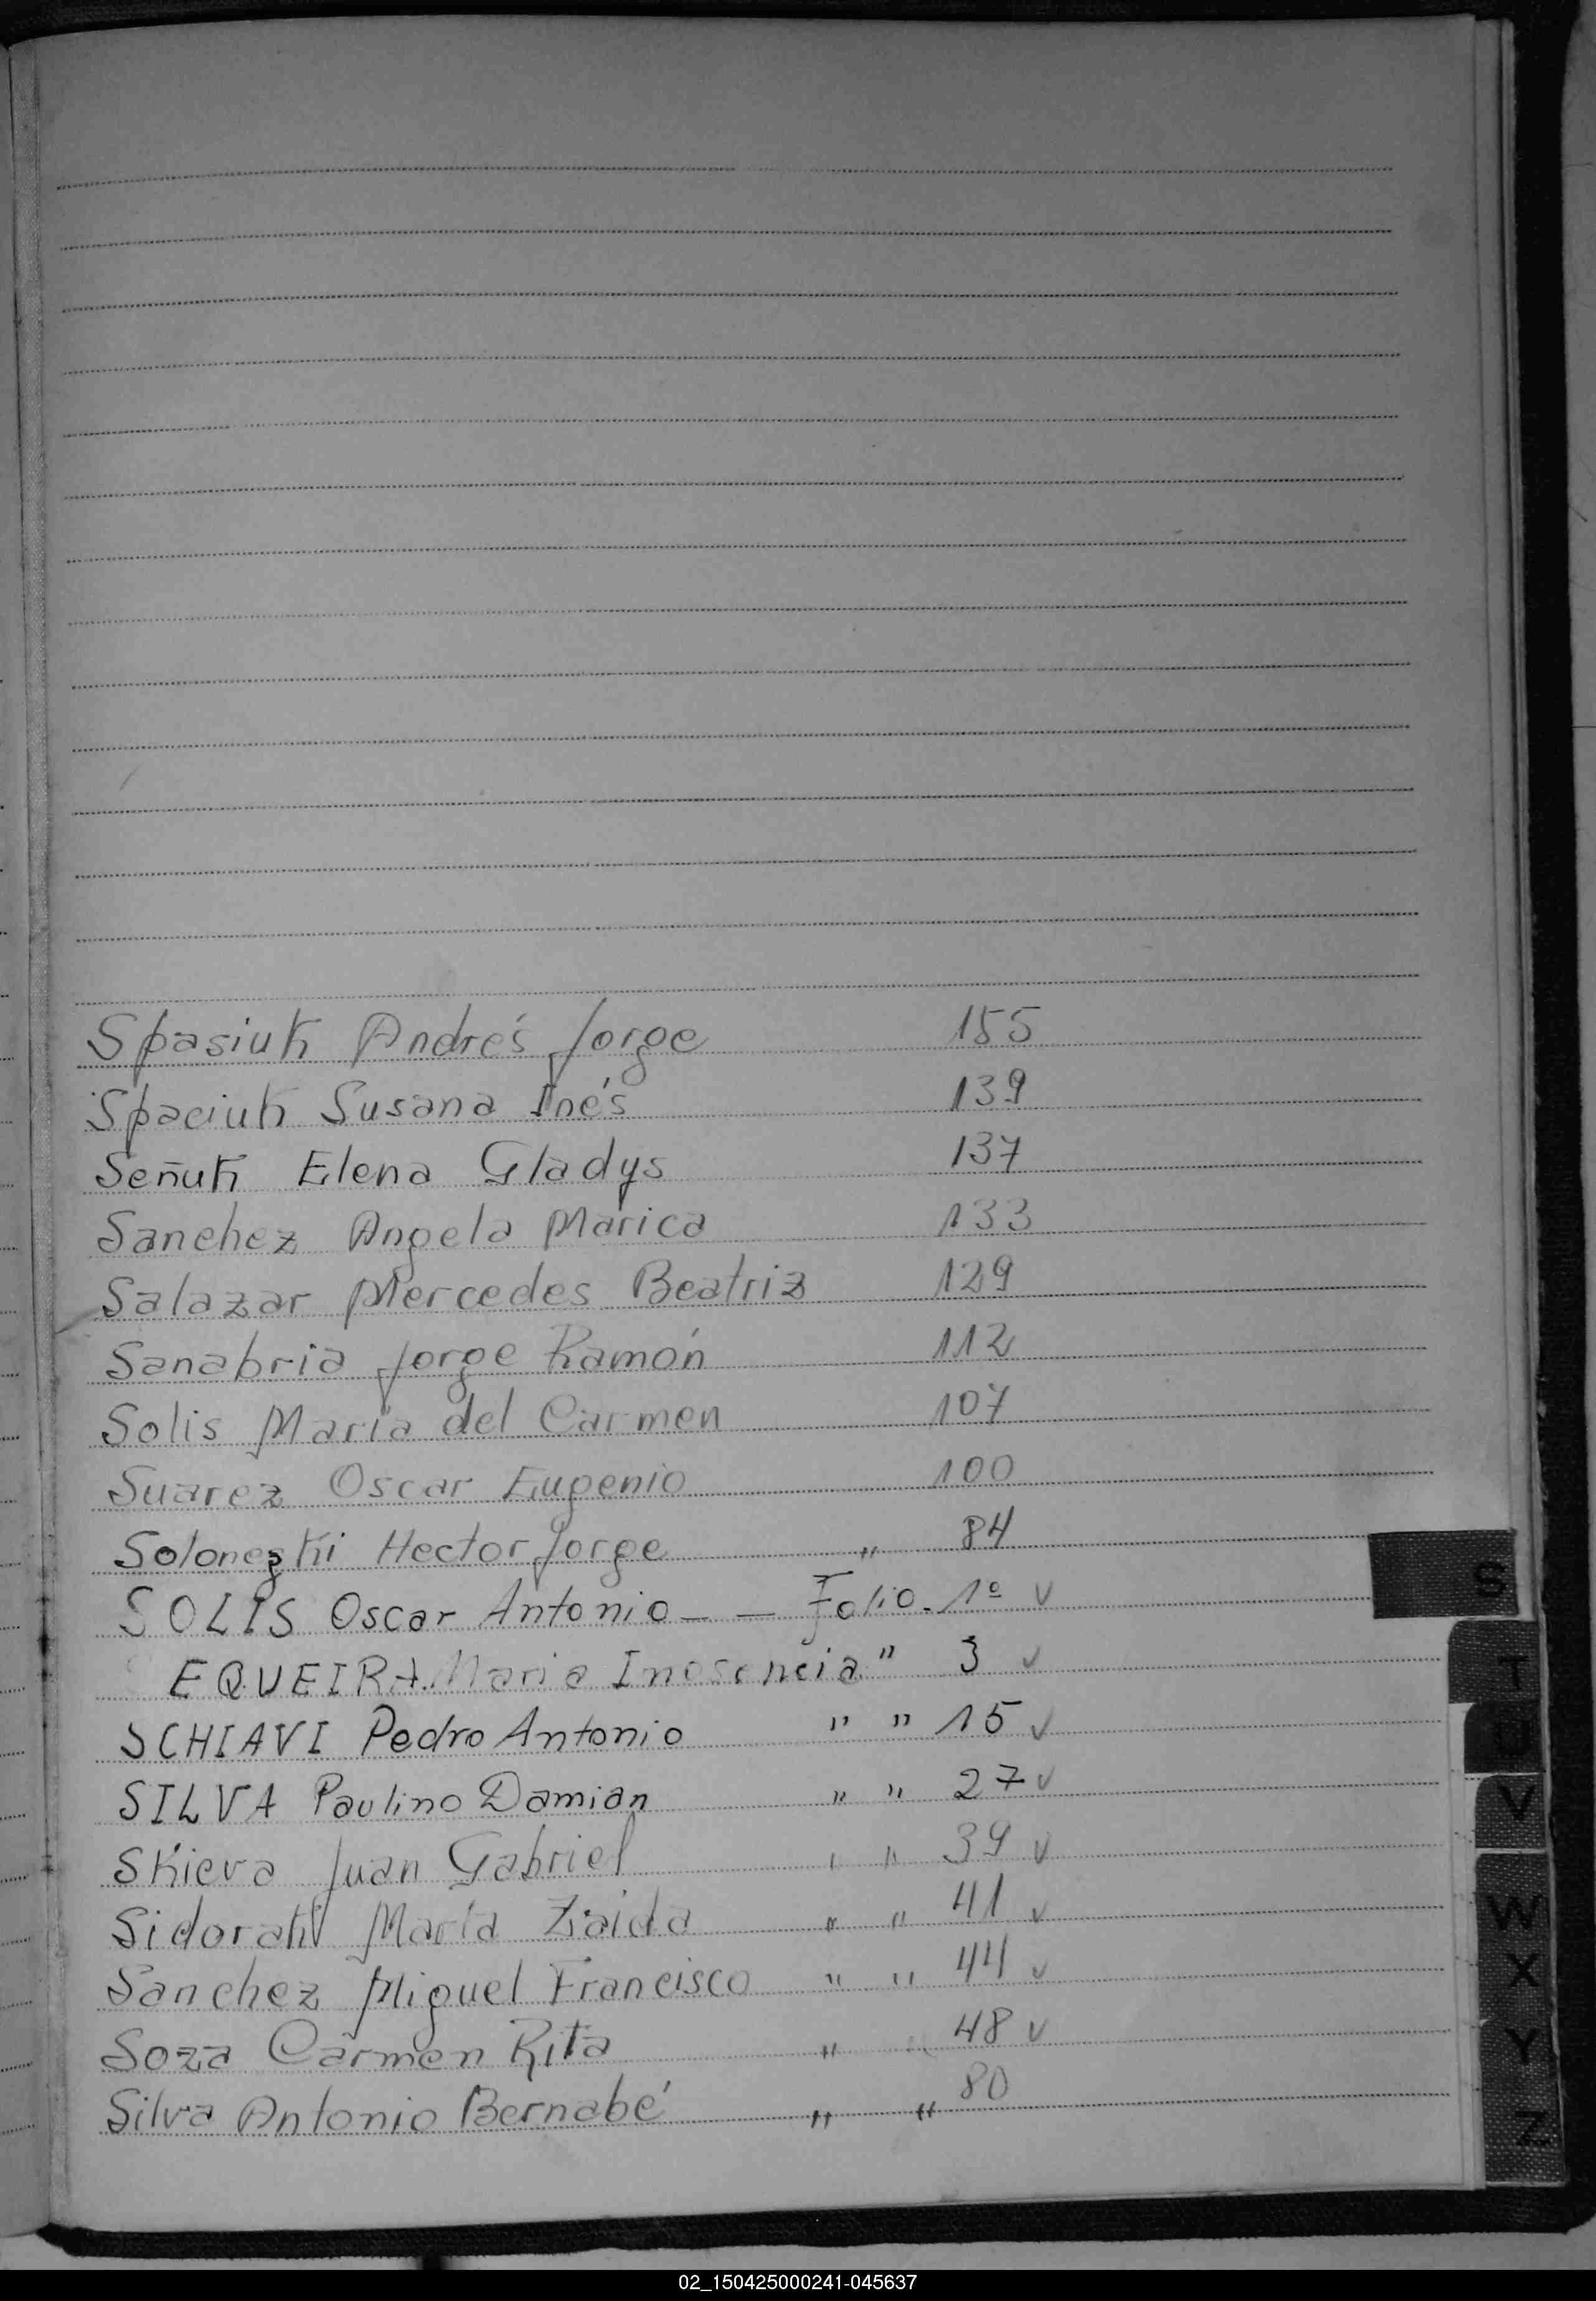 Spasiuk Andrés Jorge 155
Spaciuk Susana Inés 139
Señuk Elena Gladys 137
Sanchez Angela Marica 133
Salazar Mercedes Beatriz 129
Sanabria Jorge Ramón 112
Solis María del Carmen 107
Suarez Oscar Eugenio 100
Soloneski Hector Jorge " 84
SOLIS Oscar Antonio - - Folio. 1º v
EQUEIRA Maria Inosencia " 3 v
SCHIAVI Pedro Antonio " " 15 v
SILVA Paulino Damian " " 27 v
Skiera Juan Gabriel " " 39 v
María Zraida " " 41 v
Sanchez Miguel Francisco " " 44 v
Soza Carmen Rita " " 48 v
Silva Antonio Bernabé " " 80
S
T
U
V
W
X
Y
Z
02_150425000241-045637